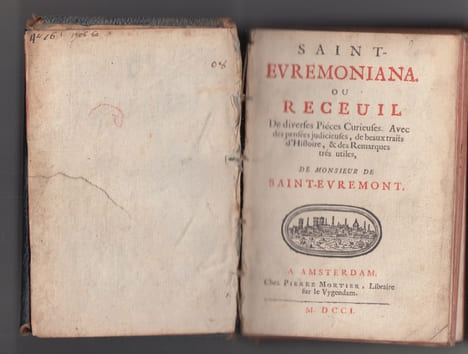 SAINT-
EVREMONIANA.
OU
RECEUIL
De diverses Piéces Curieuses. Avec
des pensées judicieuses, de beaux traits
d'Histoire, & des Remarques
trés utiles,
DE MONSIEUR DE
SAINT-EVREMONT.
A AMSTERDAM,
Chez PIERRE MORTIER, Libraire
sur le Vygendam.
M. DCCI.